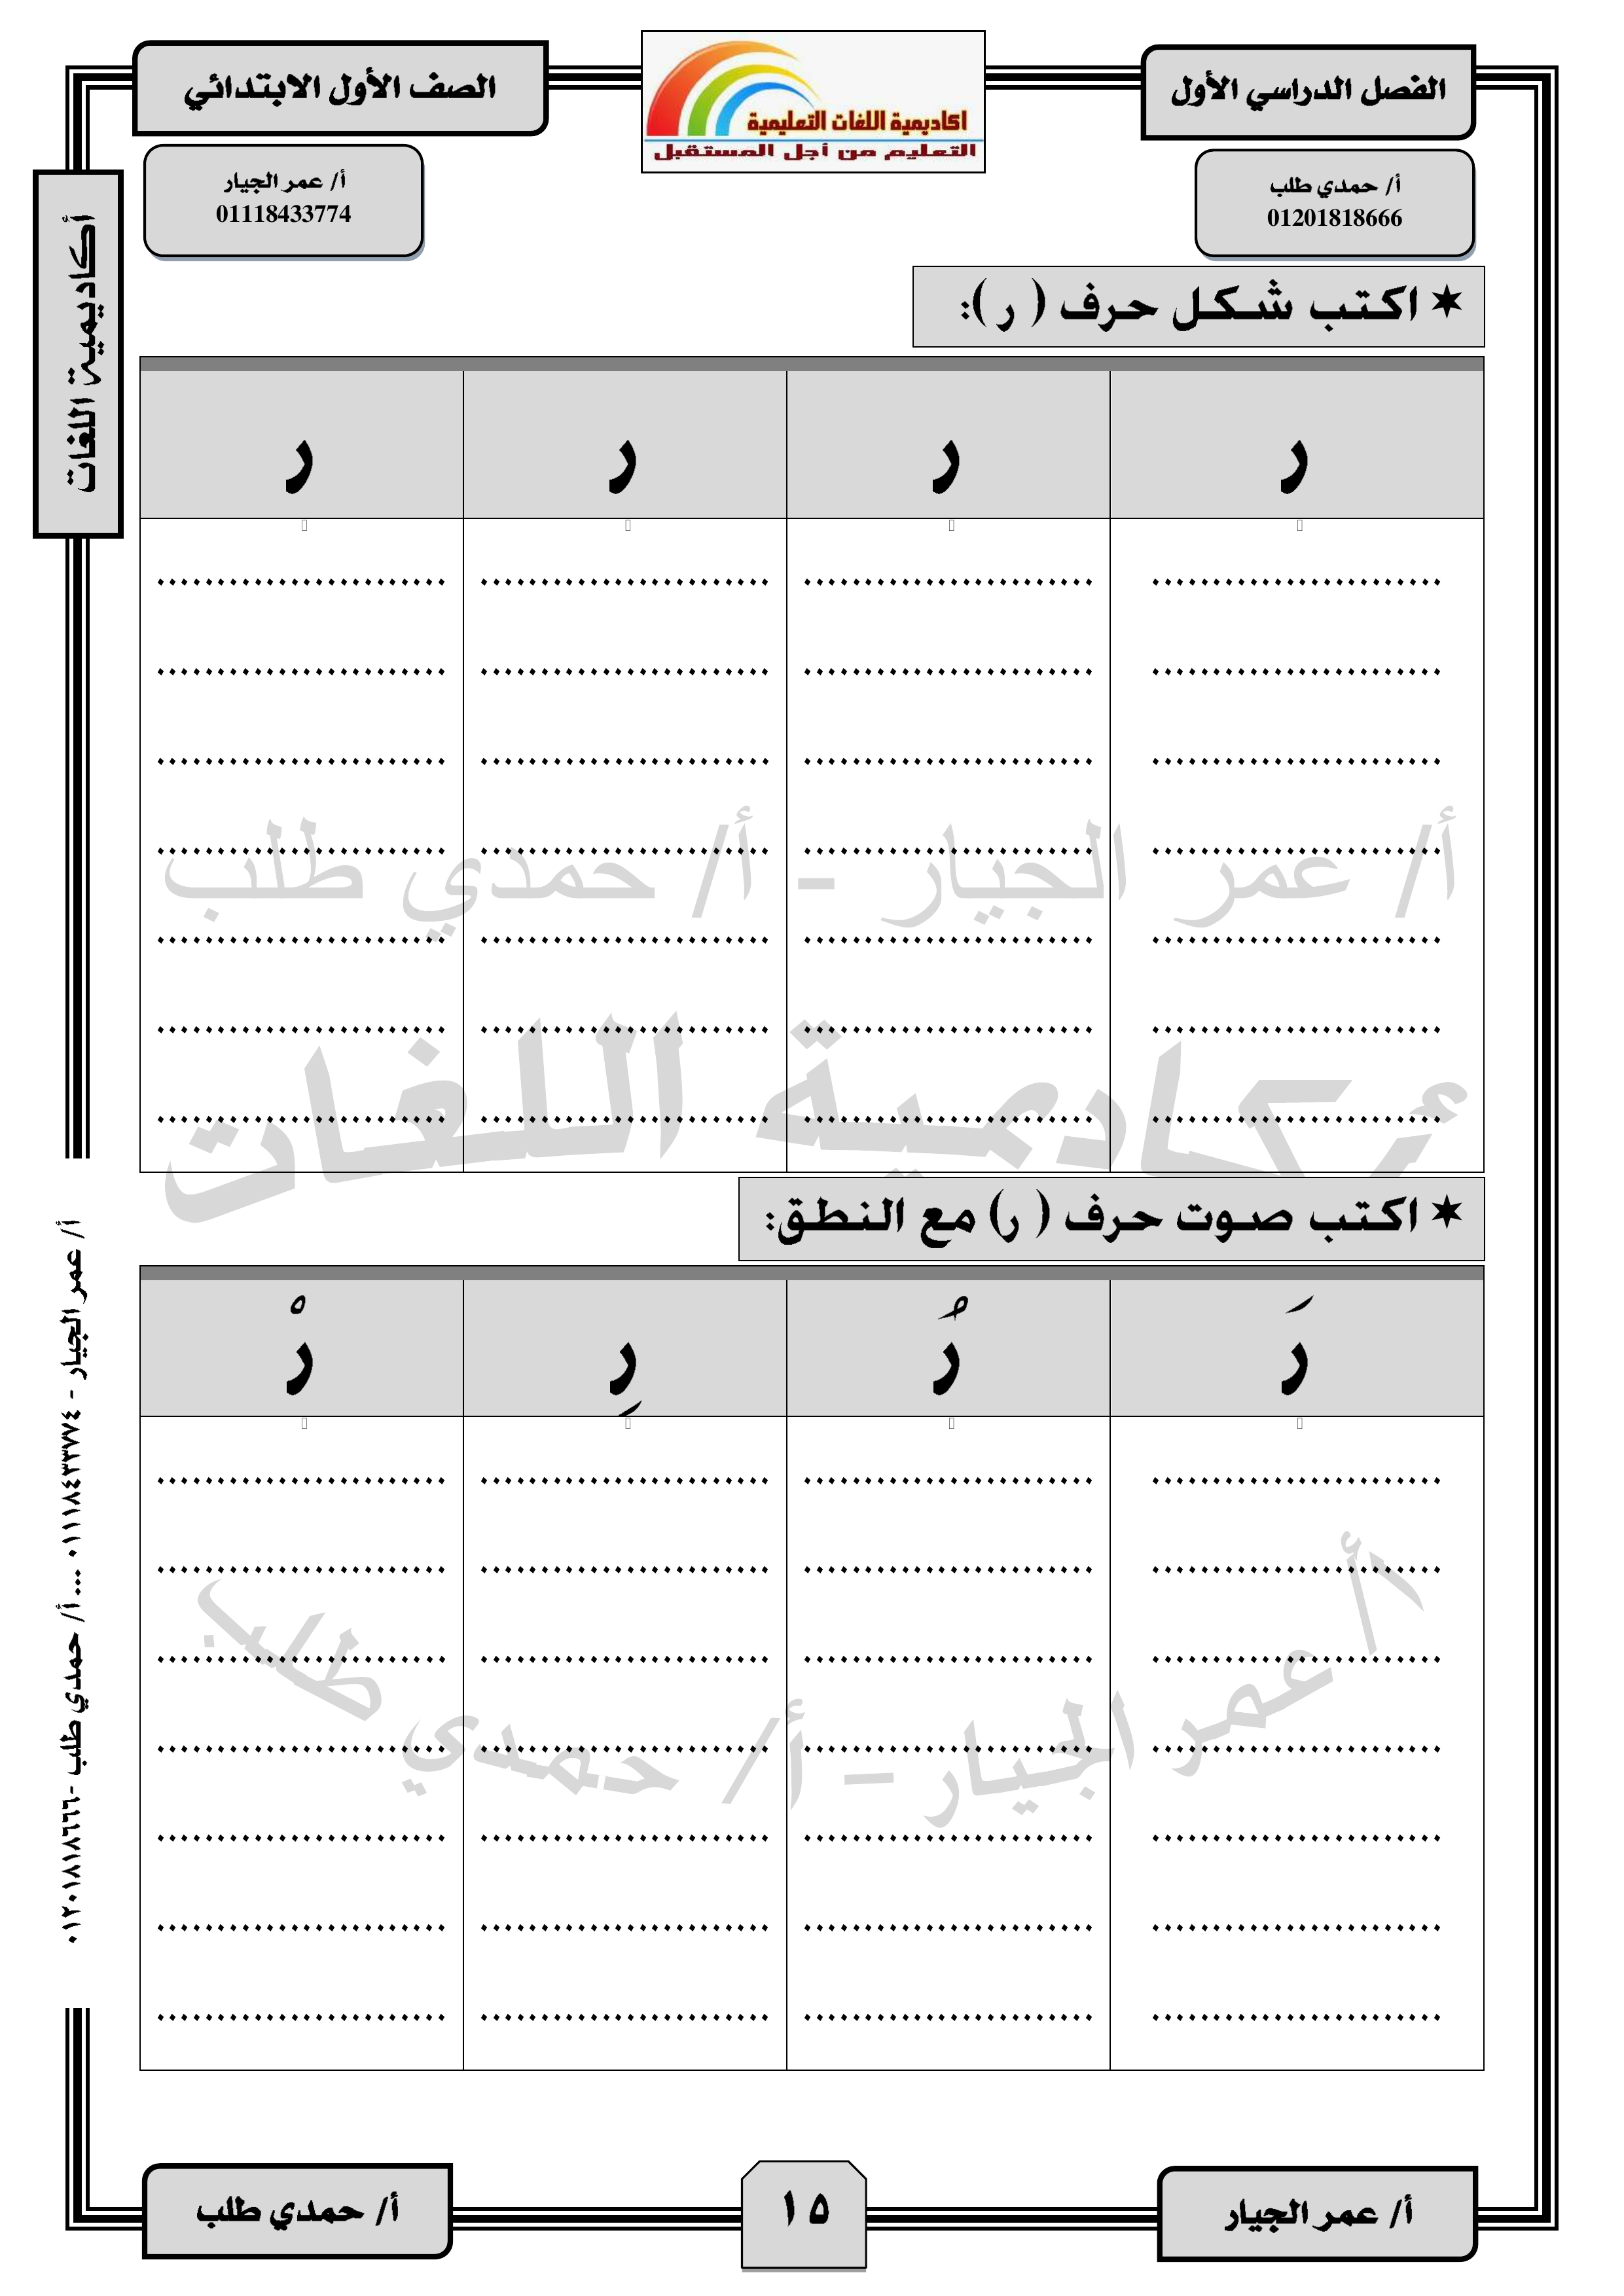 الفصل الدراسي الأول
اكاديمية اللغات التعليمية
التعليم من أجل المستقبل
الصف الأول الابتدائي
أ/ حمدي طلب
01201818666
أ/ عمر الجيار
01118433774
أكاديمية اللغات
✶ اكتب شكل حرف ( ر ):
ر ر ر ر
أ/ عمر الجيار - أ/ حمدي طلب
أكاديمية اللغات
✶ اكتب صوت حرف ( ر) مع النطق:
رَ رُ رِ رْ
أ/ عمر الجيار - أ/ حمدي طلب
أ/ عمر الجيار - ٠١١١٨٤٣٣٧٧٤ ... أ/ حمدي طلب -٠١٢٠١٨١٨٦٦٦
أ/ عمر الجيار
١٥
أ/ حمدي طلب